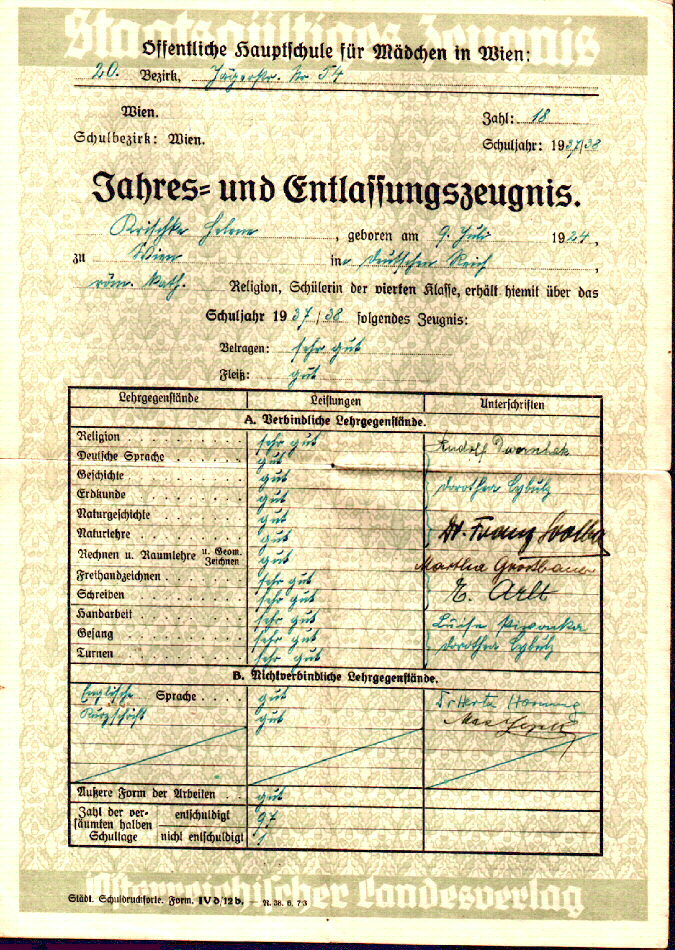 Staatsgültiges Zeugnis
Öffentliche Hauptschule für Mädchen in Wien:
20. Bezirk, Jägerstr. Nr 54
Wien.
Zahl: 18
Schulbezirk: Wien.
Schuljahr: 1937/38
Jahres- und Entlassungszeugnis.
Krischke Helene, geboren am 9. Juli 1924,
zu Wien in Deutschen Reich,
röm. kath. Religion, Schülerin der vierten Klasse, erhält hiemit über das
Schuljahr 1937/38 folgendes Zeugnis:
Betragen: sehr gut
Fleiß: gut
Lehrgegenstände Leistungen Unterschriften
A. Verbindliche Lehrgegenstände.
Religion sehr gut Rudolf
Deutsche Sprache gut
Geschichte gut Dorothea Cybulz
Erdkunde gut
Naturgeschichte gut
Naturlehre gut Dr. Franz
Rechnen u. Raumlehre u. Geom. Zeichnen gut Martha Grossbauer
Freihandzeichnen sehr gut
Schreiben sehr gut E. Arlt
Handarbeit sehr gut Luise Piwonka
Gesang sehr gut Dorothea Cybulz
Turnen sehr gut
B. Nichtverbindliche Lehrgegenstände.
Englische Sprache gut Dr Herta Hornung
Kurzschrift gut Max
Äußere Form der Arbeiten gut
Zahl der versäumten halben Schultage entschuldigt 97
nicht entschuldigt
Österreichischer Landesverlag
Städt. Schuldrucksorte. Form. IVd/12b. R. 38. 6. 73